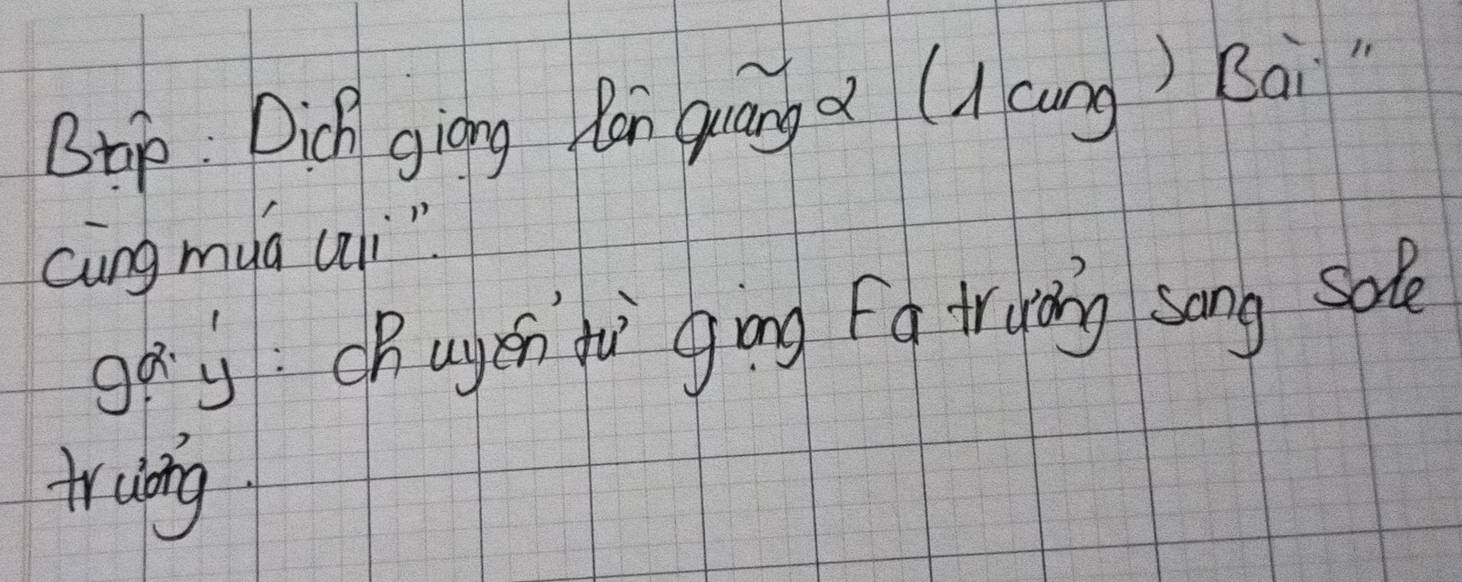 Btập: Dịch giọng lên quãng 2 (1 cung) Bài "
cùng múa vui".
gợi ý: chuyển từ giọng Fa trưởng sang Sole
trưởng.